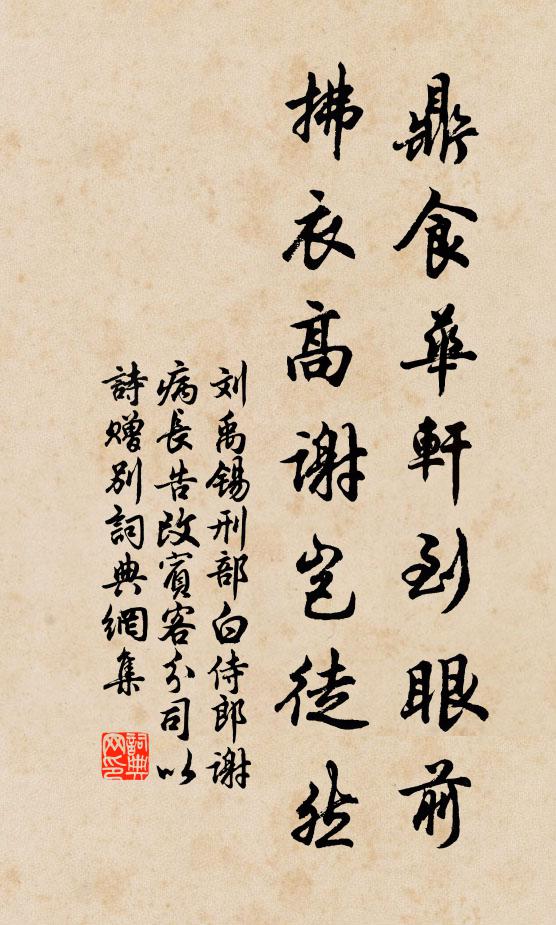 鼎食華軒到眼前
拂衣高謝豈徒然
刘禹锡刑部白侍郎謝
病長告改賓客分司以
詩赠别詞典網集
詞典网印